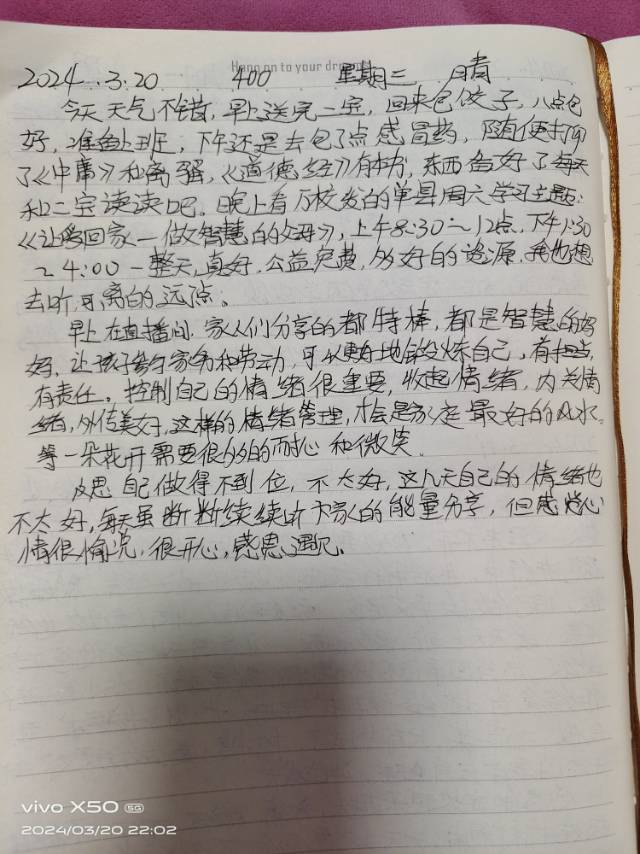 Hang on to your dr
2024.3.20 400 星期三 晴
今天天气不错,早上送完二宝,回来包饺子,八点包
好,准备上班,下午还是去包了点感冒药,随便打印
了《中庸》和离骚,《道德经》有本,东西备好了每天
和二宝读读吧。晚上看万校发的单县周六学习主题:
《让爱回家一做智慧的父母》,上午8:30～12点,下午1:30
～4:00一整天,真好,公益免费,多好的资源,我也想
去听,可离的远点。
早上在直播间,家人们分享的都特棒,都是智慧的好
妈,让孩子参与家务和劳动,可以更好地锻炼自己,有担当,
有责任。控制自己的情绪很重要,收起情绪,内关情
绪,外传美好,这样的情绪管理,才会是家庭最好的风水。
等一朵花开需要很多的耐心和微笑。
反思自己做得不到位,不太好,这几天自己的情绪也
不太好,每天虽断断续续听大家的能量分享,但感觉心
情很愉悦,很开心,感恩遇见。
vivo X50 5G
2024/03/20 22:02